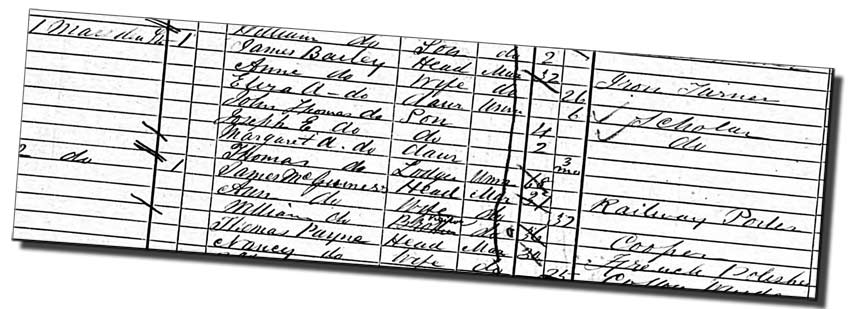 William do Son do 2
1 Marsden St 1 James Barley Head Mar 32 Iron Turner
Anne do Wife do 26
Eliza A- do Daur Unm 6 Scholar
John Thomas do Son 4 do
Joseph E. do do 2
Margaret A. do Daur 3 mo
Thomas do Lodger Unm
2 do 1 James McGuiness Head Mar Railway Porter
Ann do Wife do 37
William do Cooper
Thomas Payne Head Mar 30 French Polisher
Nancy do Wife do 25 Cotton